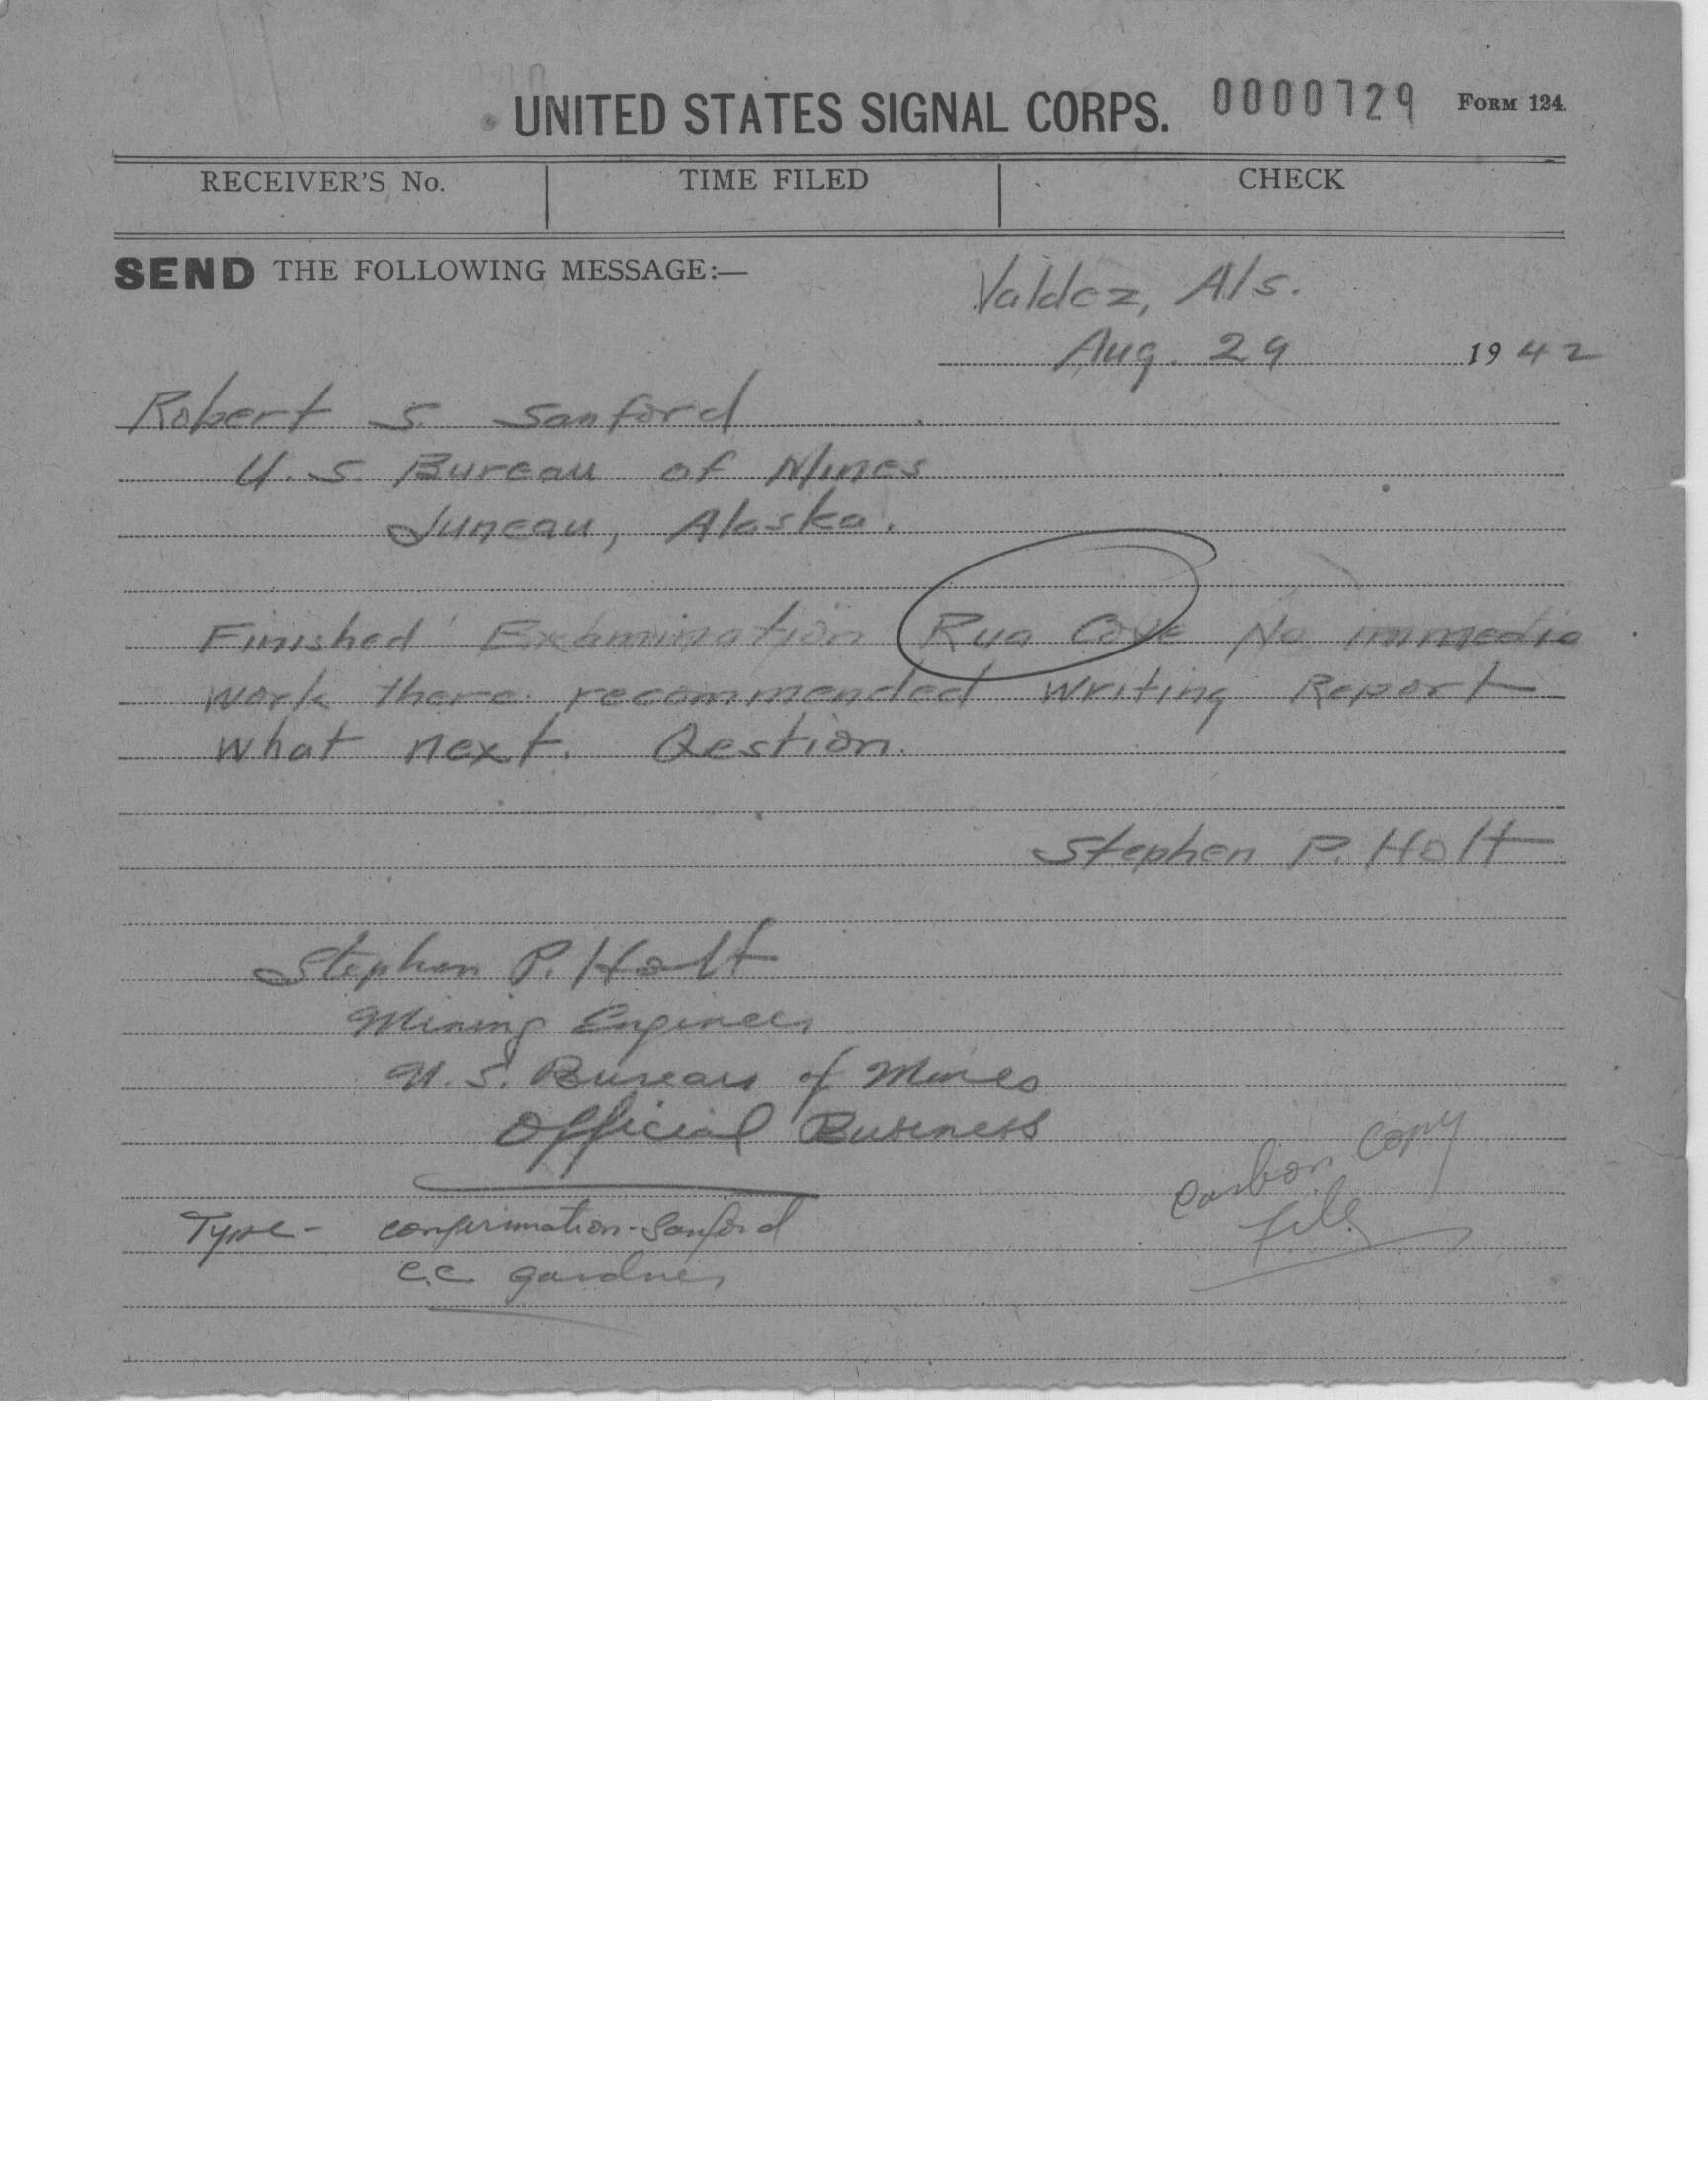 UNITED STATES SIGNAL CORPS. 0000729 FORM 124
RECEIVER'S No. TIME FILED CHECK
SEND THE FOLLOWING MESSAGE:—
Valdez, Als.
Aug. 29 1942
Robert S. Sanford
U.S. Bureau of Mines
Juneau, Alaska.
Finished Examination Rua Cove No immedia
work there recommended writing Report
what next. Qestion.
Stephen P. Holt
Stephen P. Holt
Mining Engineer
U.S. Bureau of Mines
Official Business
Carbon Copy
File
Type - confirmation - Sanford
c.c. Gardner